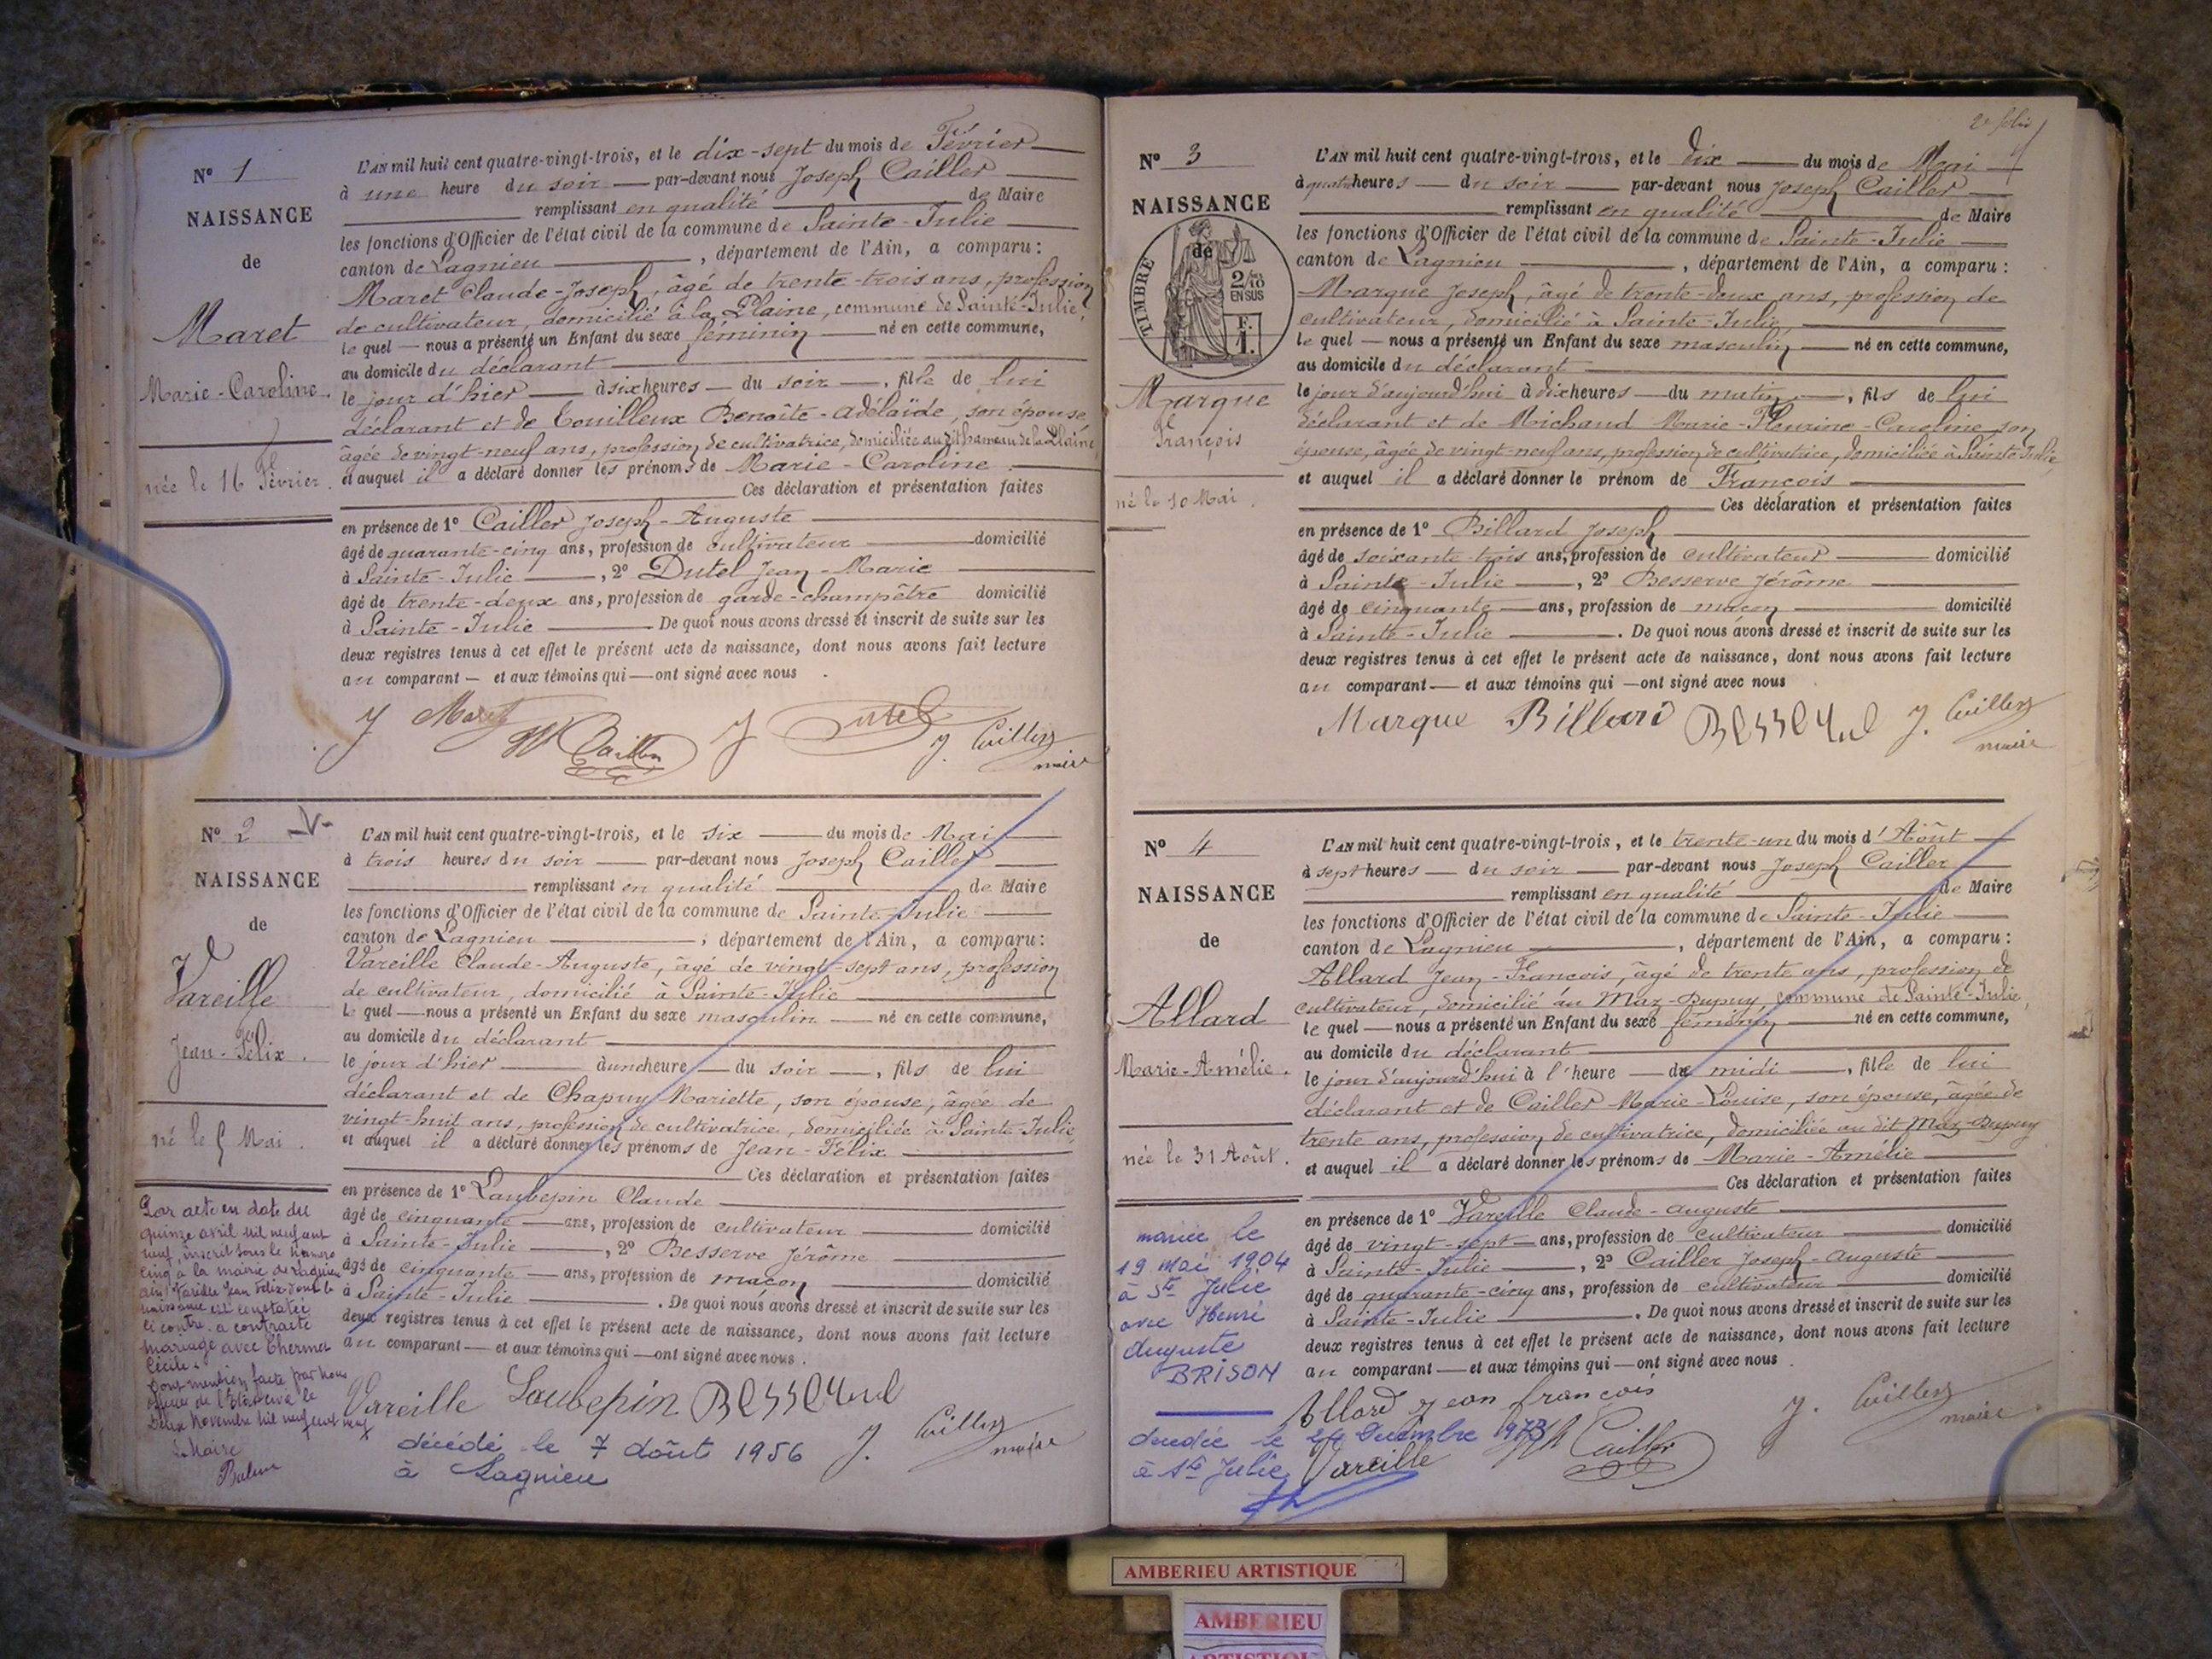 N° 1
NAISSANCE
de
Maret
Marie-Caroline.
née le 16 Février.
L'AN mil huit cent quatre-vingt-trois, et le dix-sept du mois de Février
à une heure du soir par-devant nous Joseph Cailler
remplissant en qualité de Maire
les fonctions d'Officier de l'état civil de la commune de Sainte-Julie
canton de Lagnieu, département de l'Ain, a comparu:
Maret Claude-Joseph, âgé de trente-trois ans, profession
de cultivateur, domicilié à la Plaine, commune de Sainte-Julie,
le quel nous a présenté un Enfant du sexe féminin né en cette commune,
au domicile du déclarant
le jour d'hier à six heures du soir, fille de lui
déclarant et de Touilleux Benoîte-Adélaïde, son épouse,
âgée de vingt-neuf ans, profession de cultivatrice, domiciliée au dit hameau de la Plaine,
et auquel il a déclaré donner les prénoms de Marie-Caroline.
Ces déclaration et présentation faites
en présence de 1° Cailler Joseph-Auguste
âgé de quarante-cinq ans, profession de cultivateur domicilié
à Sainte-Julie, 2° Dutel Jean-Marie
âgé de trente-deux ans, profession de garde-champêtre domicilié
à Sainte-Julie De quoi nous avons dressé et inscrit de suite sur les
deux registres tenus à cet effet le présent acte de naissance, dont nous avons fait lecture
au comparant et aux témoins qui ont signé avec nous.
J Maret Cailler J Dutel J. Cailler
maire
N° 2
NAISSANCE
de
Vareille
Jean-Félix.
né le 5 Mai.
L'AN mil huit cent quatre-vingt-trois, et le six du mois de Mai
à trois heures du soir par-devant nous Joseph Cailler
remplissant en qualité de Maire
les fonctions d'Officier de l'état civil de la commune de Sainte-Julie
canton de Lagnieu, département de l'Ain, a comparu:
Vareille Claude-Auguste, âgé de vingt-sept ans, profession
de cultivateur, domicilié à Sainte-Julie
le quel nous a présenté un Enfant du sexe masculin né en cette commune,
au domicile du déclarant
le jour d'hier à une heure du soir, fils de lui
déclarant et de Chapuy Mariette, son épouse, âgée de
vingt-huit ans, profession de cultivatrice, domiciliée à Sainte-Julie,
et auquel il a déclaré donner les prénoms de Jean-Félix
Ces déclaration et présentation faites
en présence de 1° Laubepin Claude
âgé de cinquante ans, profession de cultivateur domicilié
à Sainte-Julie, 2° Besserve Jérôme
âgé de cinquante ans, profession de maçon domicilié
à Sainte-Julie. De quoi nous avons dressé et inscrit de suite sur les
deux registres tenus à cet effet le présent acte de naissance, dont nous avons fait lecture
au comparant et aux témoins qui ont signé avec nous.
Vareille Laubepin Besserve J. Cailler
maire
Par acte en date du
quinze avril mil neuf cent
neuf inscrit sous le numéro
cinq à la mairie de Lagnieu
Ain Vareille Jean Félix dont la
naissance est constatée
ci contre a contracté
mariage avec Thermet
Cécile.
Pour mention faite par nous
officier de l'Etat civil le
deux Novembre mil neuf cent neuf
Le Maire
décédé le 7 Août 1956
à Lagnieu
2e folio
N° 3
NAISSANCE
de
TIMBRE
2/10
EN SUS
F.
1.
Marque
François
né le 10 Mai.
L'AN mil huit cent quatre-vingt-trois, et le dix du mois de Mai
à quatre heures du soir par-devant nous Joseph Cailler
remplissant en qualité de Maire
les fonctions d'Officier de l'état civil de la commune de Sainte-Julie
canton de Lagnieu, département de l'Ain, a comparu:
Marque Joseph, âgé de trente-deux ans, profession de
cultivateur, domicilié à Sainte-Julie,
le quel nous a présenté un Enfant du sexe masculin né en cette commune,
au domicile du déclarant
le jour d'aujourd'hui à dix heures du matin, fils de lui
déclarant et de Michaud Marie-Fleurine-Caroline son
épouse, âgée de vingt-neuf ans, profession de cultivatrice, domiciliée à Sainte-Julie,
et auquel il a déclaré donner le prénom de François
Ces déclaration et présentation faites
en présence de 1° Billard Joseph
âgé de soixante-trois ans, profession de cultivateur domicilié
à Sainte-Julie, 2° Besserve Jérôme
âgé de cinquante ans, profession de maçon domicilié
à Sainte-Julie. De quoi nous avons dressé et inscrit de suite sur les
deux registres tenus à cet effet le présent acte de naissance, dont nous avons fait lecture
au comparant et aux témoins qui ont signé avec nous
Marque Billard Besserve J. Cailler
maire
N° 4
NAISSANCE
de
Allard
Marie-Amélie.
née le 31 Août.
L'AN mil huit cent quatre-vingt-trois, et le trente-un du mois d'Août
à sept heures du soir par-devant nous Joseph Cailler
remplissant en qualité de Maire
les fonctions d'Officier de l'état civil de la commune de Sainte-Julie
canton de Lagnieu, département de l'Ain, a comparu:
Allard Jean-François, âgé de trente ans, profession de
cultivateur, domicilié au Maz-Dupuy, commune de Sainte-Julie,
le quel nous a présenté un Enfant du sexe féminin né en cette commune,
au domicile du déclarant
le jour d'aujourd'hui à l'heure de midi, fille de lui
déclarant et de Cailler Marie-Louise, son épouse, âgée de
trente ans, profession de cultivatrice, domiciliée au dit Maz-Dupuy
et auquel il a déclaré donner les prénoms de Marie-Amélie
Ces déclaration et présentation faites
en présence de 1° Vareille Claude-Auguste
âgé de vingt-sept ans, profession de cultivateur domicilié
à Sainte-Julie, 2° Cailler Joseph-Auguste
âgé de quarante-cinq ans, profession de cultivateur domicilié
à Sainte-Julie. De quoi nous avons dressé et inscrit de suite sur les
deux registres tenus à cet effet le présent acte de naissance, dont nous avons fait lecture
au comparant et aux témoins qui ont signé avec nous.
Allard jean françois J. Cailler
maire
Vareille Cailler
mariée le
19 mai 1904
à Ste Julie
avec Henri
Auguste
BRISON
décédée le 24 Décembre 1973
à Ste Julie
AMBERIEU ARTISTIQUE
AMBERIEU
ARTISTIQU